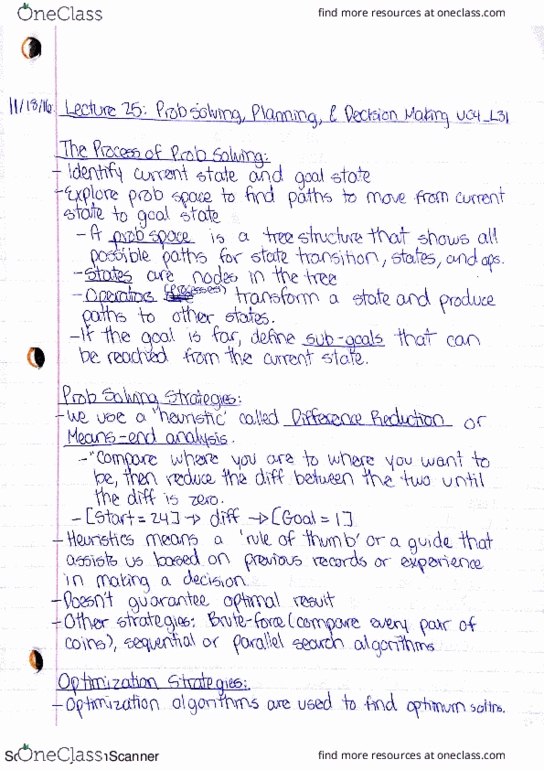 OneClass
find more resources at oneclass.com
11/18/16 Lecture 25: Prob Solving, Planning, & Decision Making UC4_L31
The Process of Prob Solving:
- Identify current state and goal state
- Explore prob space to find paths to move from current
state to goal state
- A prob space is a tree structure that shows all
possible paths for state transition, states, and ops.
- States are nodes in the tree
- Operators (processes) transform a state and produce
paths to other states.
- If the goal is far, define sub-goals that can
be reached from the current state.
Prob Solving Strategies:
- We use a 'heuristic' called Difference Reduction or
Means-end analysis.
- "Compare where you are to where you want to
be, then reduce the diff between the two until
the diff is zero.
- [Start = 24] → diff → [Goal = 1]
- Heuristics means a 'rule of thumb' or a guide that
assists us based on previous records or experience
in making a decision
- Doesn't guarantee optimal result
- Other strategies: Brute-force (compare every pair of
coins), sequential or parallel search algorithms
Optimization Strategies:
- Optimization algorithms are used to find optimum soltns.
OneClass Scanner
find more resources at oneclass.com